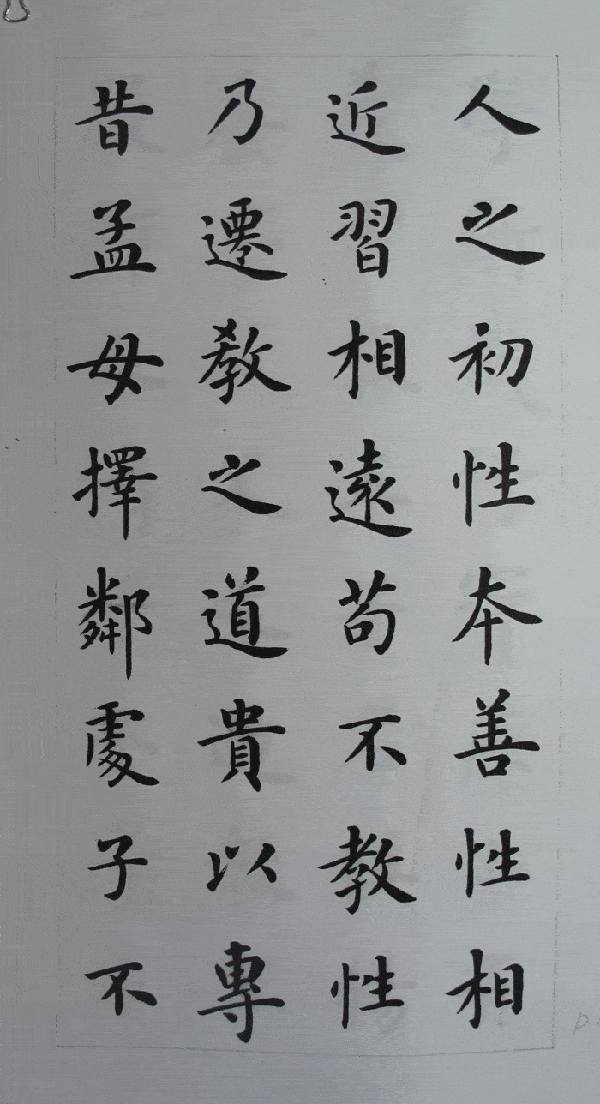 人之初性本善性相
近習相遠苟不教性
乃遷教之道貴以專
昔孟母擇鄰處子不